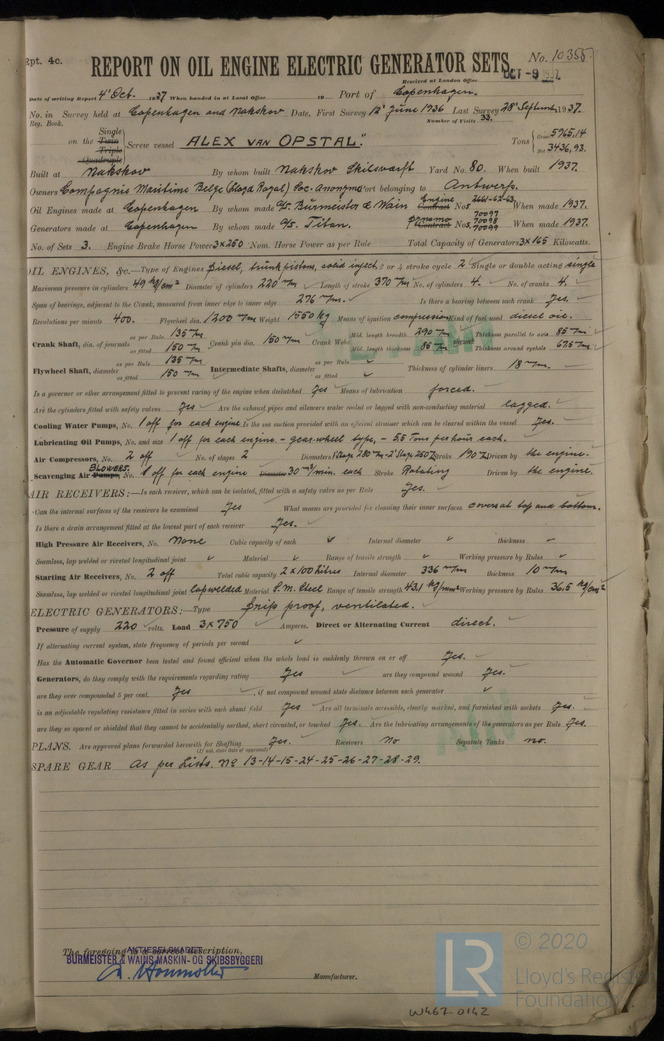 Rpt. 4c.
REPORT ON OIL ENGINE ELECTRIC GENERATOR SETS.
No. 10355.
Received at London Office OCT -9 1937
Date of writing Report 4' Oct. 1937 When handed in at Local Office 19 Port of Copenhagen.
No. in Survey held at Copenhagen and Nakskov Date, First Survey 12' June 1936 Last Survey 28' Septemb. 1937.
Reg. Book. Number of Visits 33.
on the Single Twin Triple Quadruple Screw vessel "ALEX VAN OPSTAL". Tons Gross 5965,14 Net 3436,93.
Built at Nakskov By whom built Nakskov Skibsværft Yard No. 80. When built 1937.
Owners Compagnie Maritime Belge (Lloyd Royal) Soc. Anonyme Port belonging to Antwerp.
Oil Engines made at Copenhagen By whom made A/S. Burmeister & Wain Engine Contract Nos. 2661-62-63 When made 1937.
Generators made at Copenhagen By whom made A/S. Titan. Dynamo Contract Nos. 70097 70098 70099 When made 1937.
No. of Sets 3. Engine Brake Horse Power 3×250 Nom. Horse Power as per Rule Total Capacity of Generators 3×165 Kilowatts.
OIL ENGINES, &c.—Type of Engines Diesel, trunk pistons, solid inject. 2 or 4 stroke cycle 2 Single or double acting single
Maximum pressure in cylinders 49 kg/cm² Diameter of cylinders 220 m/m Length of stroke 370 m/m No. of cylinders 4. No. of cranks 4.
Span of bearings, adjacent to the Crank, measured from inner edge to inner edge 276 m/m. Is there a bearing between each crank Yes.
Revolutions per minute 400. Flywheel dia. 1200 m/m Weight 1550 kg Means of ignition compression Kind of fuel used diesel oil.
Crank Shaft, dia. of journals as per Rule 135 m/m as fitted 150 m/m Crank pin dia. 150 m/m Crank Webs Mid. length breadth 290 m/m Mid. length thickness 85 m/m Thickness parallel to axis 85 m/m Thickness around eyehole 67.5 m/m
Flywheel Shaft, diameter as per Rule 135 m/m as fitted 150 m/m Intermediate Shafts, diameter as per Rule as fitted Thickness of cylinder liners 18 m/m.
Is a governor or other arrangement fitted to prevent racing of the engine when declutched Yes Means of lubrication forced.
Are the cylinders fitted with safety valves Yes Are the exhaust pipes and silencers water cooled or lagged with non-conducting material lagged.
Cooling Water Pumps, No. 1 off for each engine Is the sea suction provided with an efficient strainer which can be cleared within the vessel Yes.
Lubricating Oil Pumps, No. and size 1 off for each engine - gear-wheel type, - 5.5 Tons per hour each.
Air Compressors, No. 2 off No. of stages 2 Diameters Stroke 190 m/m Driven by the engine.
Scavenging Air Pumps, BLOWERS No. 1 off for each engine Diameter 30 m³/min. each Stroke Rotating Driven by the engine.
AIR RECEIVERS:—Is each receiver, which can be isolated, fitted with a safety valve as per Rule Yes.
Can the internal surfaces of the receivers be examined Yes What means are provided for cleaning their inner surfaces covers at top and bottom.
Is there a drain arrangement fitted at the lowest part of each receiver Yes.
High Pressure Air Receivers, No. None Cubic capacity of each Internal diameter thickness
Seamless, lap welded or riveted longitudinal joint Material Range of tensile strength Working pressure by Rules
Starting Air Receivers, No. 2 off Total cubic capacity 2×100 Litres Internal diameter 336 m/m thickness 10 m/m
Seamless, lap welded or riveted longitudinal joint lapwelded Material S.M. Steel Range of tensile strength 43.1 kg/mm² Working pressure by Rules 36,5 kg/cm²
ELECTRIC GENERATORS:—Type Drip proof, ventilated.
Pressure of supply 220 volts. Load 3×750 Amperes. Direct or Alternating Current direct.
If alternating current system, state frequency of periods per second
Has the Automatic Governor been tested and found efficient when the whole load is suddenly thrown on or off Yes.
Generators, do they comply with the requirements regarding rating Yes are they compound wound Yes.
are they over compounded 5 per cent. Yes, if not compound wound state distance between each generator
is an adjustable regulating resistance fitted in series with each shunt field Yes Are all terminals accessible, clearly marked, and furnished with sockets Yes.
are they so spaced or shielded that they cannot be accidentally earthed, short circuited, or touched Yes. Are the lubricating arrangements of the generators as per Rule Yes.
PLANS. Are approved plans forwarded herewith for Shafting Yes. Receivers No Separate Tanks no.
(If not, state date of approval)
SPARE GEAR As per Lists. No 13-14-15-24-25-26-27-28-29.
The foregoing is a correct description,
AKTIESELSKABET
BURMEISTER & WAINS MASKIN- OG SKIBSBYGGERI
Manufacturer.
LR © 2020
Lloyd's Register
Foundation
W467-0142